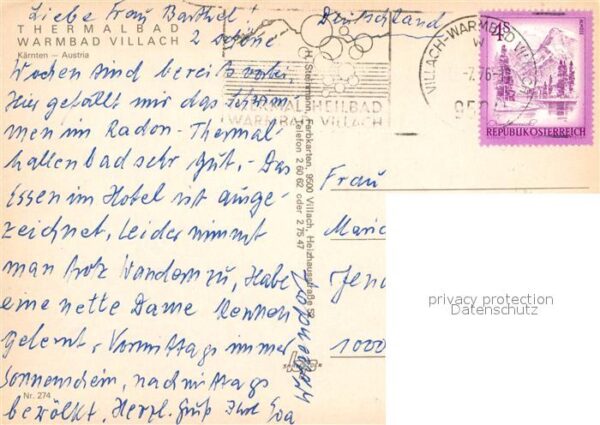 Liebe Frau Barthel!
Deutschland
THERMALBAD
WARMBAD VILLACH
Kärnten – Austria
2 schöne
Wochen sind bereits vorbei,
Hier gefällt mir das Schwim-
men im Radon-Thermal-
hallenbad sehr gut, - Das
Essen im Hotel ist ausge-
zeichnet, leider nimmt
man trotz Wandern zu, Habe
eine nette Dame kennen
gelernt, Vormittags immer
Sonnenschein, nachmittags
Nr. 274
bewölkt, Herzl. Gruß Ihre Eva
H. Farbkarten, 9500 Villach, Heizhausstraße
Telefon 2 60 62 oder 2 75 47
THERMAL-HEILBAD
WARMBAD VILLACH
VILLACH-WARMBAD VILLACH
REPUBLIK ÖSTERREICH
Frau
1000
privacy protection
Datenschutz